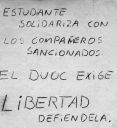 ESTUDIANTE
SOLIDARIZA CON
LOS COMPAÑEROS
SANCIONADOS.
EL DUOC EXIGE
LiBERTAD
DEFIENDELA.